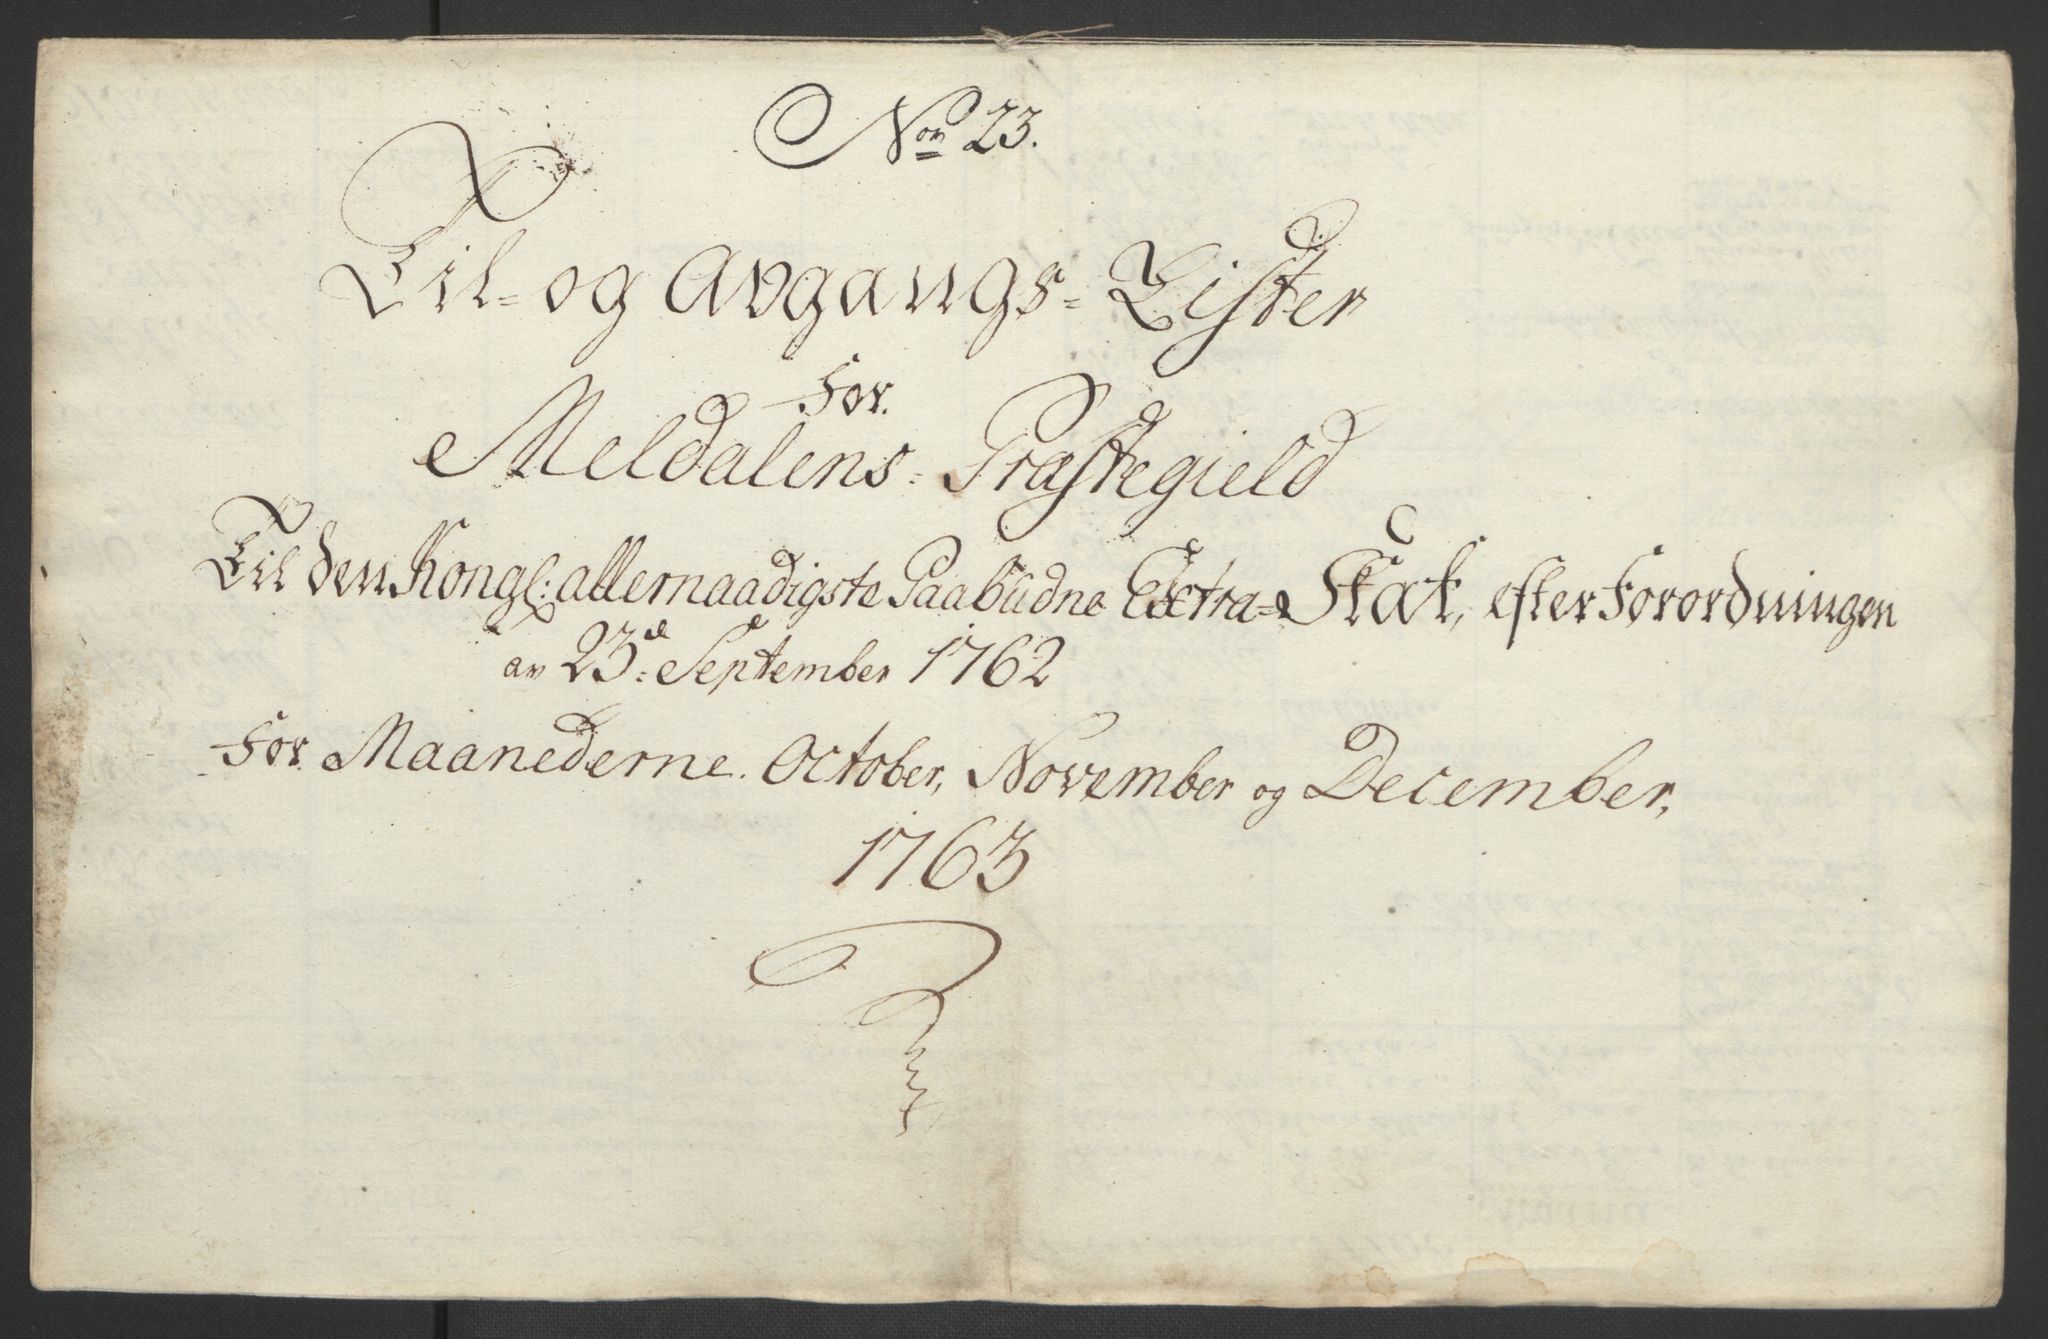 No 23.
Til- og Avgangs- Lister
For
Meldalens- Præstegield
Til den Kongl: allernaadigste Paabudne Extra- Skat, efter Forordningen
av 23d September 1762
For Maanederne October, November og December,
1763